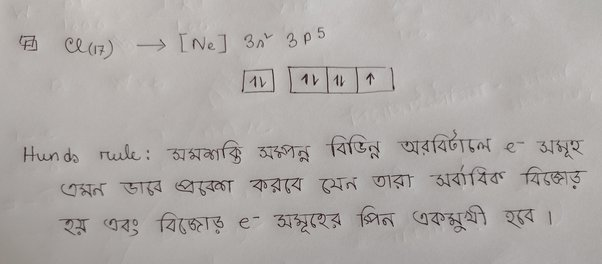 Cl(17) → [Ne] 3s² 3p⁵
↑↓ ↑↓ ↑↓ ↑
Hunds rule: সমশক্তি সম্পন্ন বিভিন্ন অরবিটালে e⁻ সমূহ
এমন ভাবে প্রবেশ করবে যেন তারা সর্বাধিক বিজোড়
হয় এবং বিজোড় e⁻ সমূহের স্পিন একমুখী হবে।